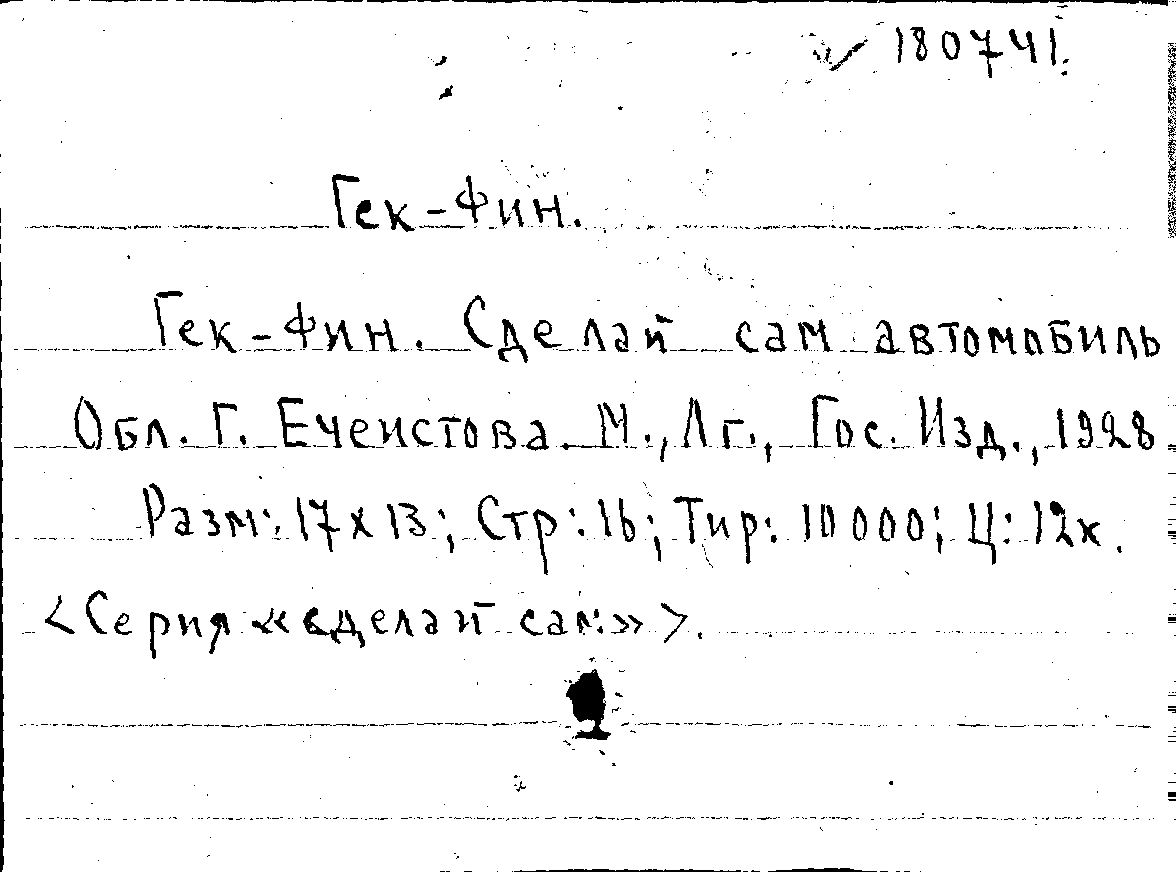 ✓ 180741.
Гек-Фин.
Гек-Фин. Сделай сам автомобиль
Обл. Г. Ечеистова. М., Лг., Гос. Изд., 1928.
Разм: 17 x 13; Стр: 16; Тир: 10 000; Ц: 12к.
<Серия «сделай сам»>.